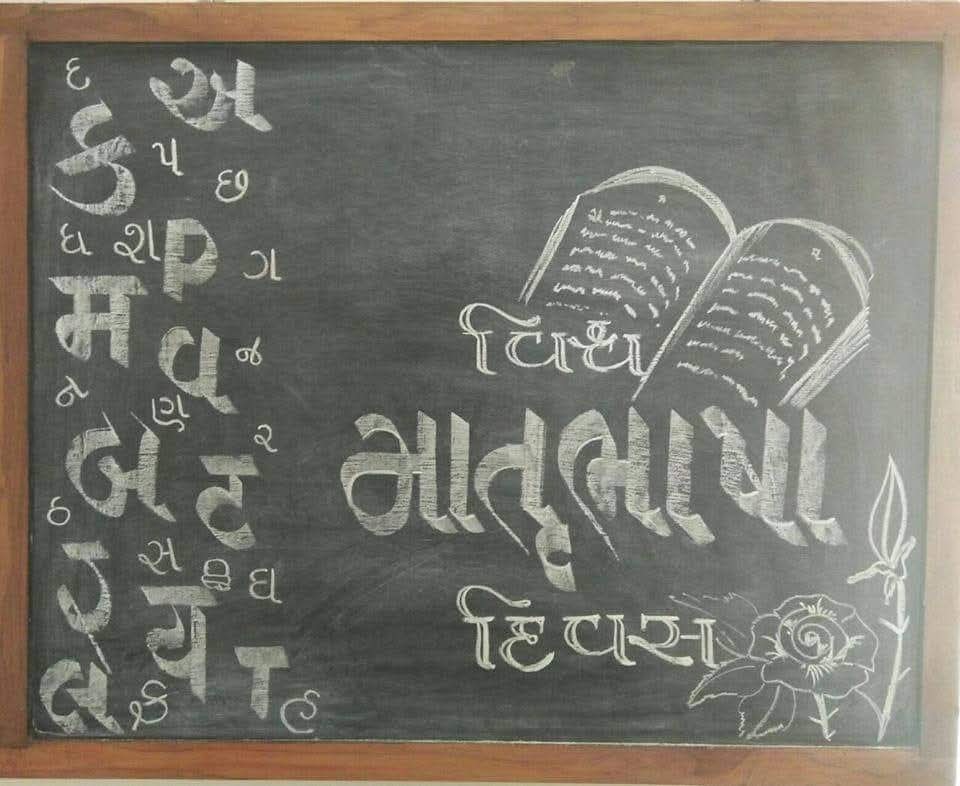 દ અ
ક
પ
છ
ઘ શ P ગ
म
વ જ
ન
ણ
બ ર
ટ
ઠ
સ ઘ
य
T
ક હ
વિશ્વ
માતૃભાષા
દિવસ